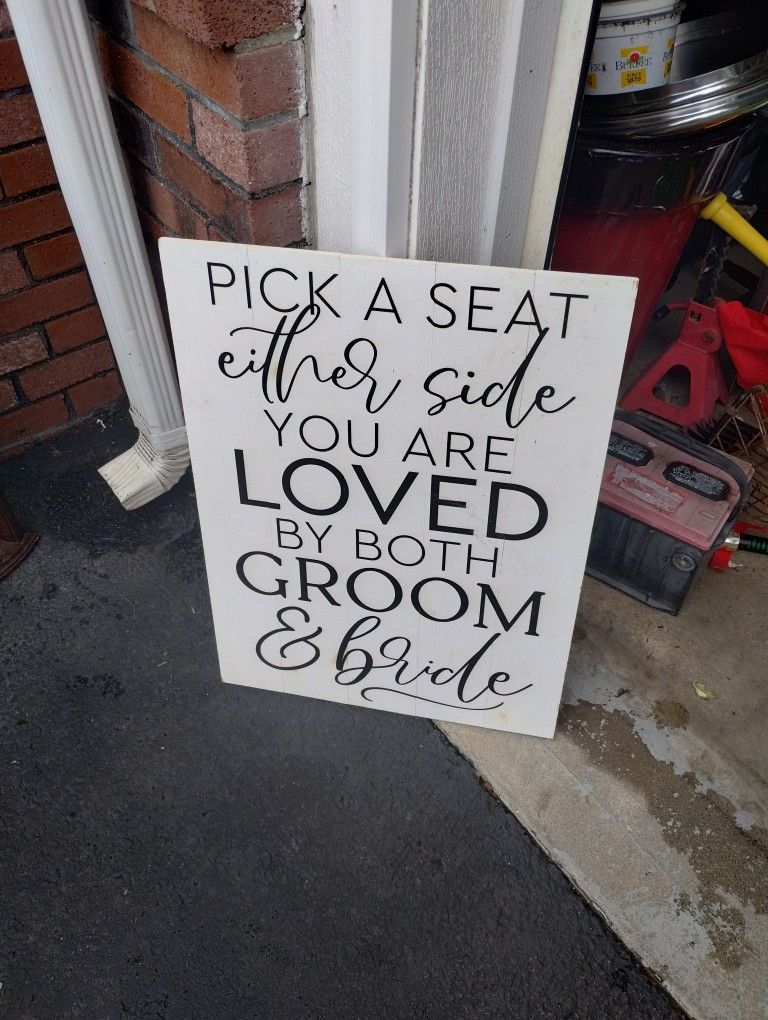 BURPEE
SINCE
1876
PICK A SEAT
either side
YOU ARE
LOVED
BY BOTH
GROOM
& bride